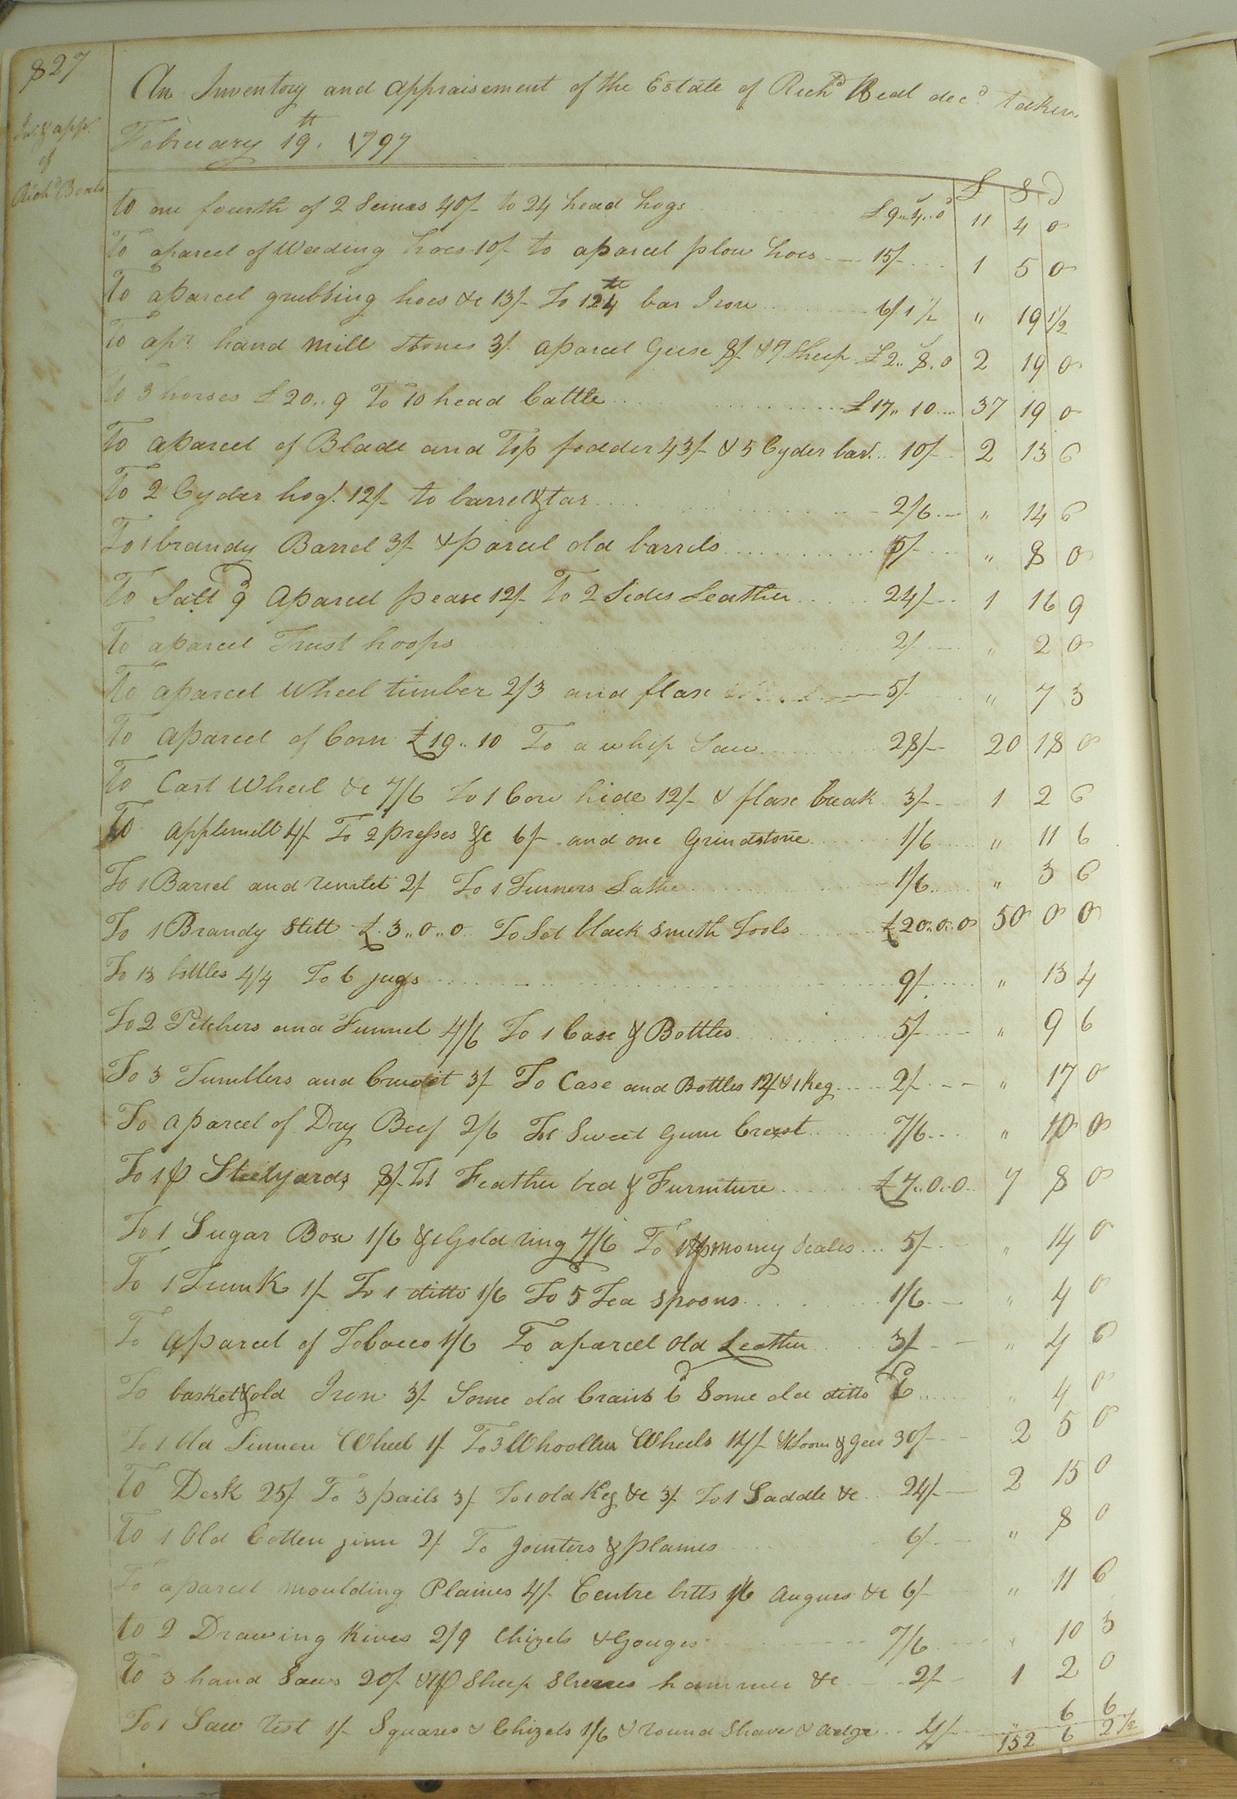 827
An Inventory and appraisement of the Estate of Richd Beal decd. taken
February 19th. 1797
Inv & app.
of
Richd Beals
£ S D
To one fourth of 2 Seines 40/- to 24 head hogs £9..4..0 11 4 0
To aparcel of Weeding hoes 10/- to aparcel plow hoes 15/- 1 5 0
To aparcel grubbing hoes &c 13/- To 12 bar Iron 6/1 1/2 " 19 1 1/2
To apr hand mill stones 3/. aparcel Geese 8/. & 7 Sheep £2..8.0 2 19 0
to 3 horses £20..9 To 10 head Cattle £17..10 37 19 0
To aparcel of Blade and Top fodder 43/- & 5 Cyder bar. 10/- 2 13 6
To 2 Cyder hogd. 12/- to barrel & tar 2/6 " 14 6
To 1 brandy Barrel 3/- & parcel old barrels 5/- " 8 0
To Salt 9d Aparcel pease 12/- To 2 Sides Leather 24/- 1 16 9
To aparcel Trust hoops 2/- " 2 0
To aparcel Wheel timber 2/3 and flax 5/- " 7 3
To aparcel of Corn £19..10 To a whip Saw 28/- 20 18 0
To Cart Wheel &c 7/6 To 1 Cow hide 12/- & flax break 3/- 1 2 6
To applemill 4/- To 2 presses &c 6/- and one Grindstone 1/6 " 11 6
To 1 Barrel and 2/- To 1 Turners Lathe 1/6 " 3 6
To 1 Brandy Still £.3..0..0 To Set black Smith Tools £20..0..0 50 0 0
To 13 bottles 4/4 To 6 jugs 9/- " 13 4
To 2 Pitchers and Funnel 4/6 To 1 Case & Bottles 5/- " 9 6
To 3 Tumblers and Cruet 3/- To Case and Bottles 12/- & 1 Keg 2/- " 17 0
To aparcel of Dry Beef 2/6 To 1 Sweet Gum 7/6 " 10 0
To 1 p Steelyards 8/- To 1 Feather bed & Furniture £7..0..0 7 8 0
To 1 Sugar Box 1/6 & 1 Gold ring 7/6 To 1 p money Scales 5/- " 14 0
To 1 Trunk 1/- To 1 ditto 1/6 To 5 Tea Spoons 1/6 " 4 0
To aparcel of Tobacco 1/6 To aparcel old Leather 3/- " 4 6
To basket & old Iron 3/- Some old 6d Some old ditto 6d " 4 0
To 1 Old Linnen Wheel 1/. To 3 Woollen Wheels 14/- & Loom & Geer 30/- 2 5 0
To Desk 25/- To 3 pails 3/- To 1 old Keg &c 3/- To 1 Saddle &c 24/- 2 15 0
To 1 Old Cotten ginn 2/- To Jointers & plaines 6/- " 8 0
To aparcel moulding Plaines 4/- Centre bitts 1/6 augurs &c 6/- " 11 6
to 2 Drawing Knives 2/9 Chizels & Gouges 7/6 " 10 3
To 3 hand Saws 20/- & 1 p Sheep Sheers hammer &c 2/- 1 2 0
To 1 Saw rest 1/- Squares & Chizels 1/6 & round Shave & adze 4/- " 6 6
152 6 2 1/2